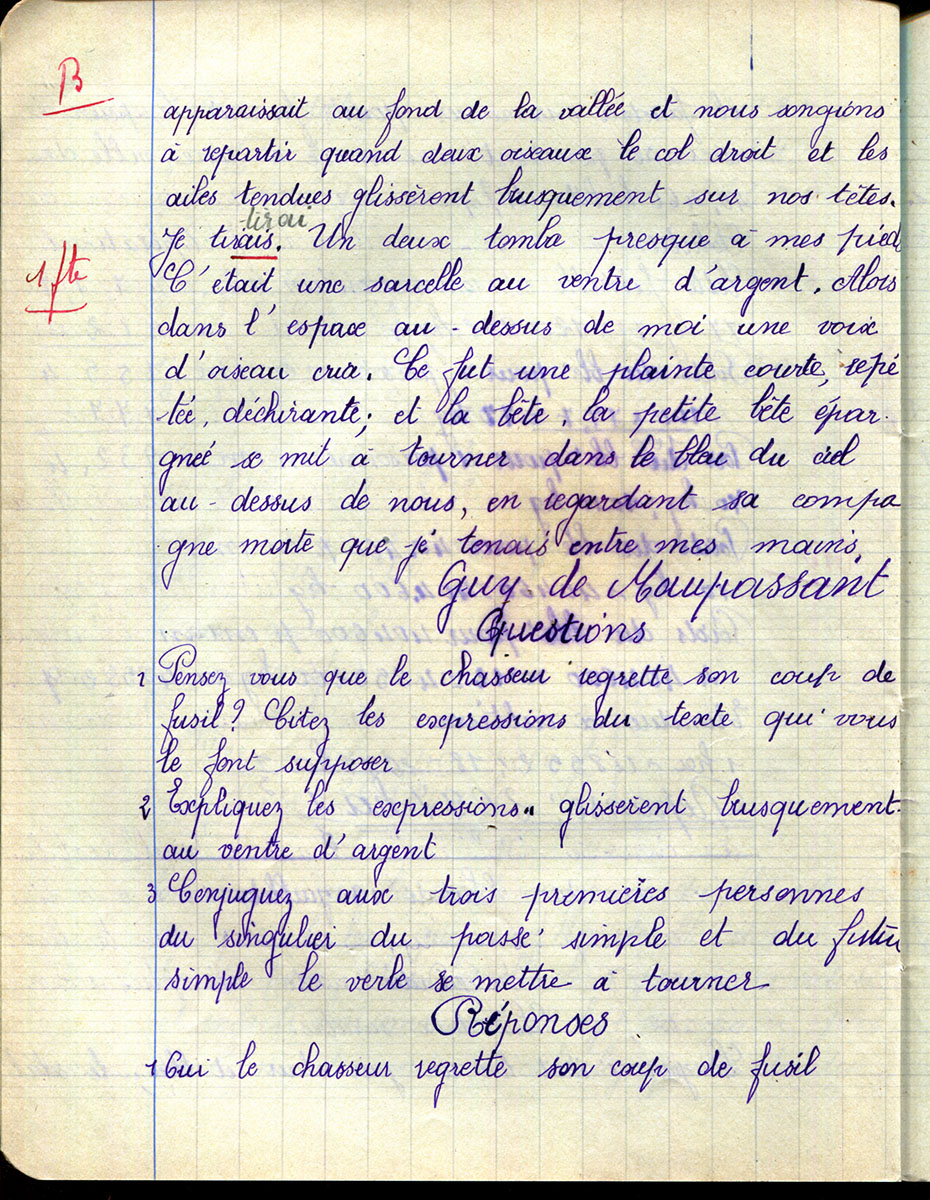 B
apparaissait au fond de la vallée et nous songions
à repartir quand deux oiseaux le col droit et les
ailes tendues glissèrent brusquement sur nos têtes.
tirai
Je tirais. Un deux tomba presque à mes pied
1 fte
C'était une sarcelle au ventre d'argent. Alors
dans l'espace au-dessus de moi une voix
d'oiseau cria. Ce fut une plainte courte, répé
tée, déchirante; et la bête, la petite bête épar-
gnée se mit à tourner dans le bleu du ciel
au-dessus de nous, en regardant sa compa
gne morte que je tenais entre mes mains.
Guy de Maupassant
Questions
1 Pensez vous que le chasseur regrette son coup de
fusil? Citez les expressions du texte qui vous
le font supposer
2 Expliquez les expressions.. glissèrent brusquement-
au ventre d'argent
3 Conjuguez aux trois premières personnes
du singulier du passé simple et du futu
simple le verbe se mettre à tourner
Réponses
1 Oui le chasseur regrette son coup de fusil